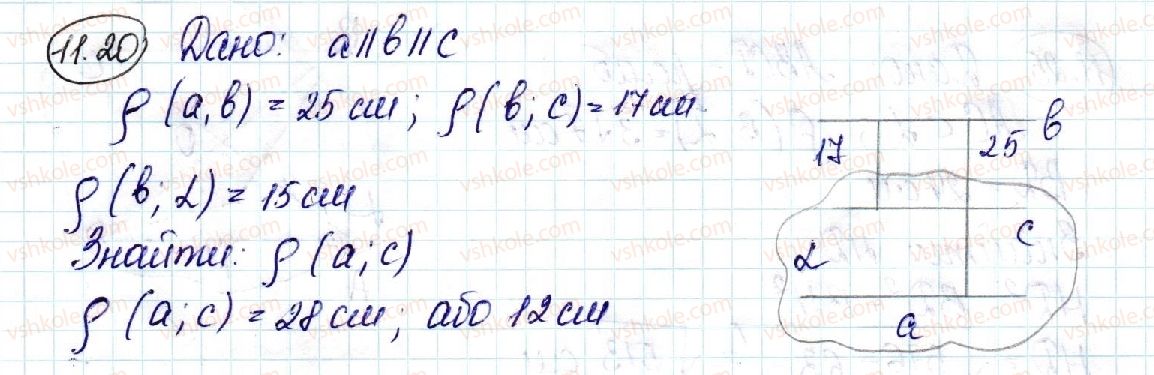 11.20 Дано: a∥b∥c
ρ(a,b) = 25 см; ρ(b;c) = 17 см
ρ(b;α) = 15 см
Знайти: ρ(a;c)
ρ(a;c) = 28 см; або 12 см
17 25 b
c
α
a
vshkole.com